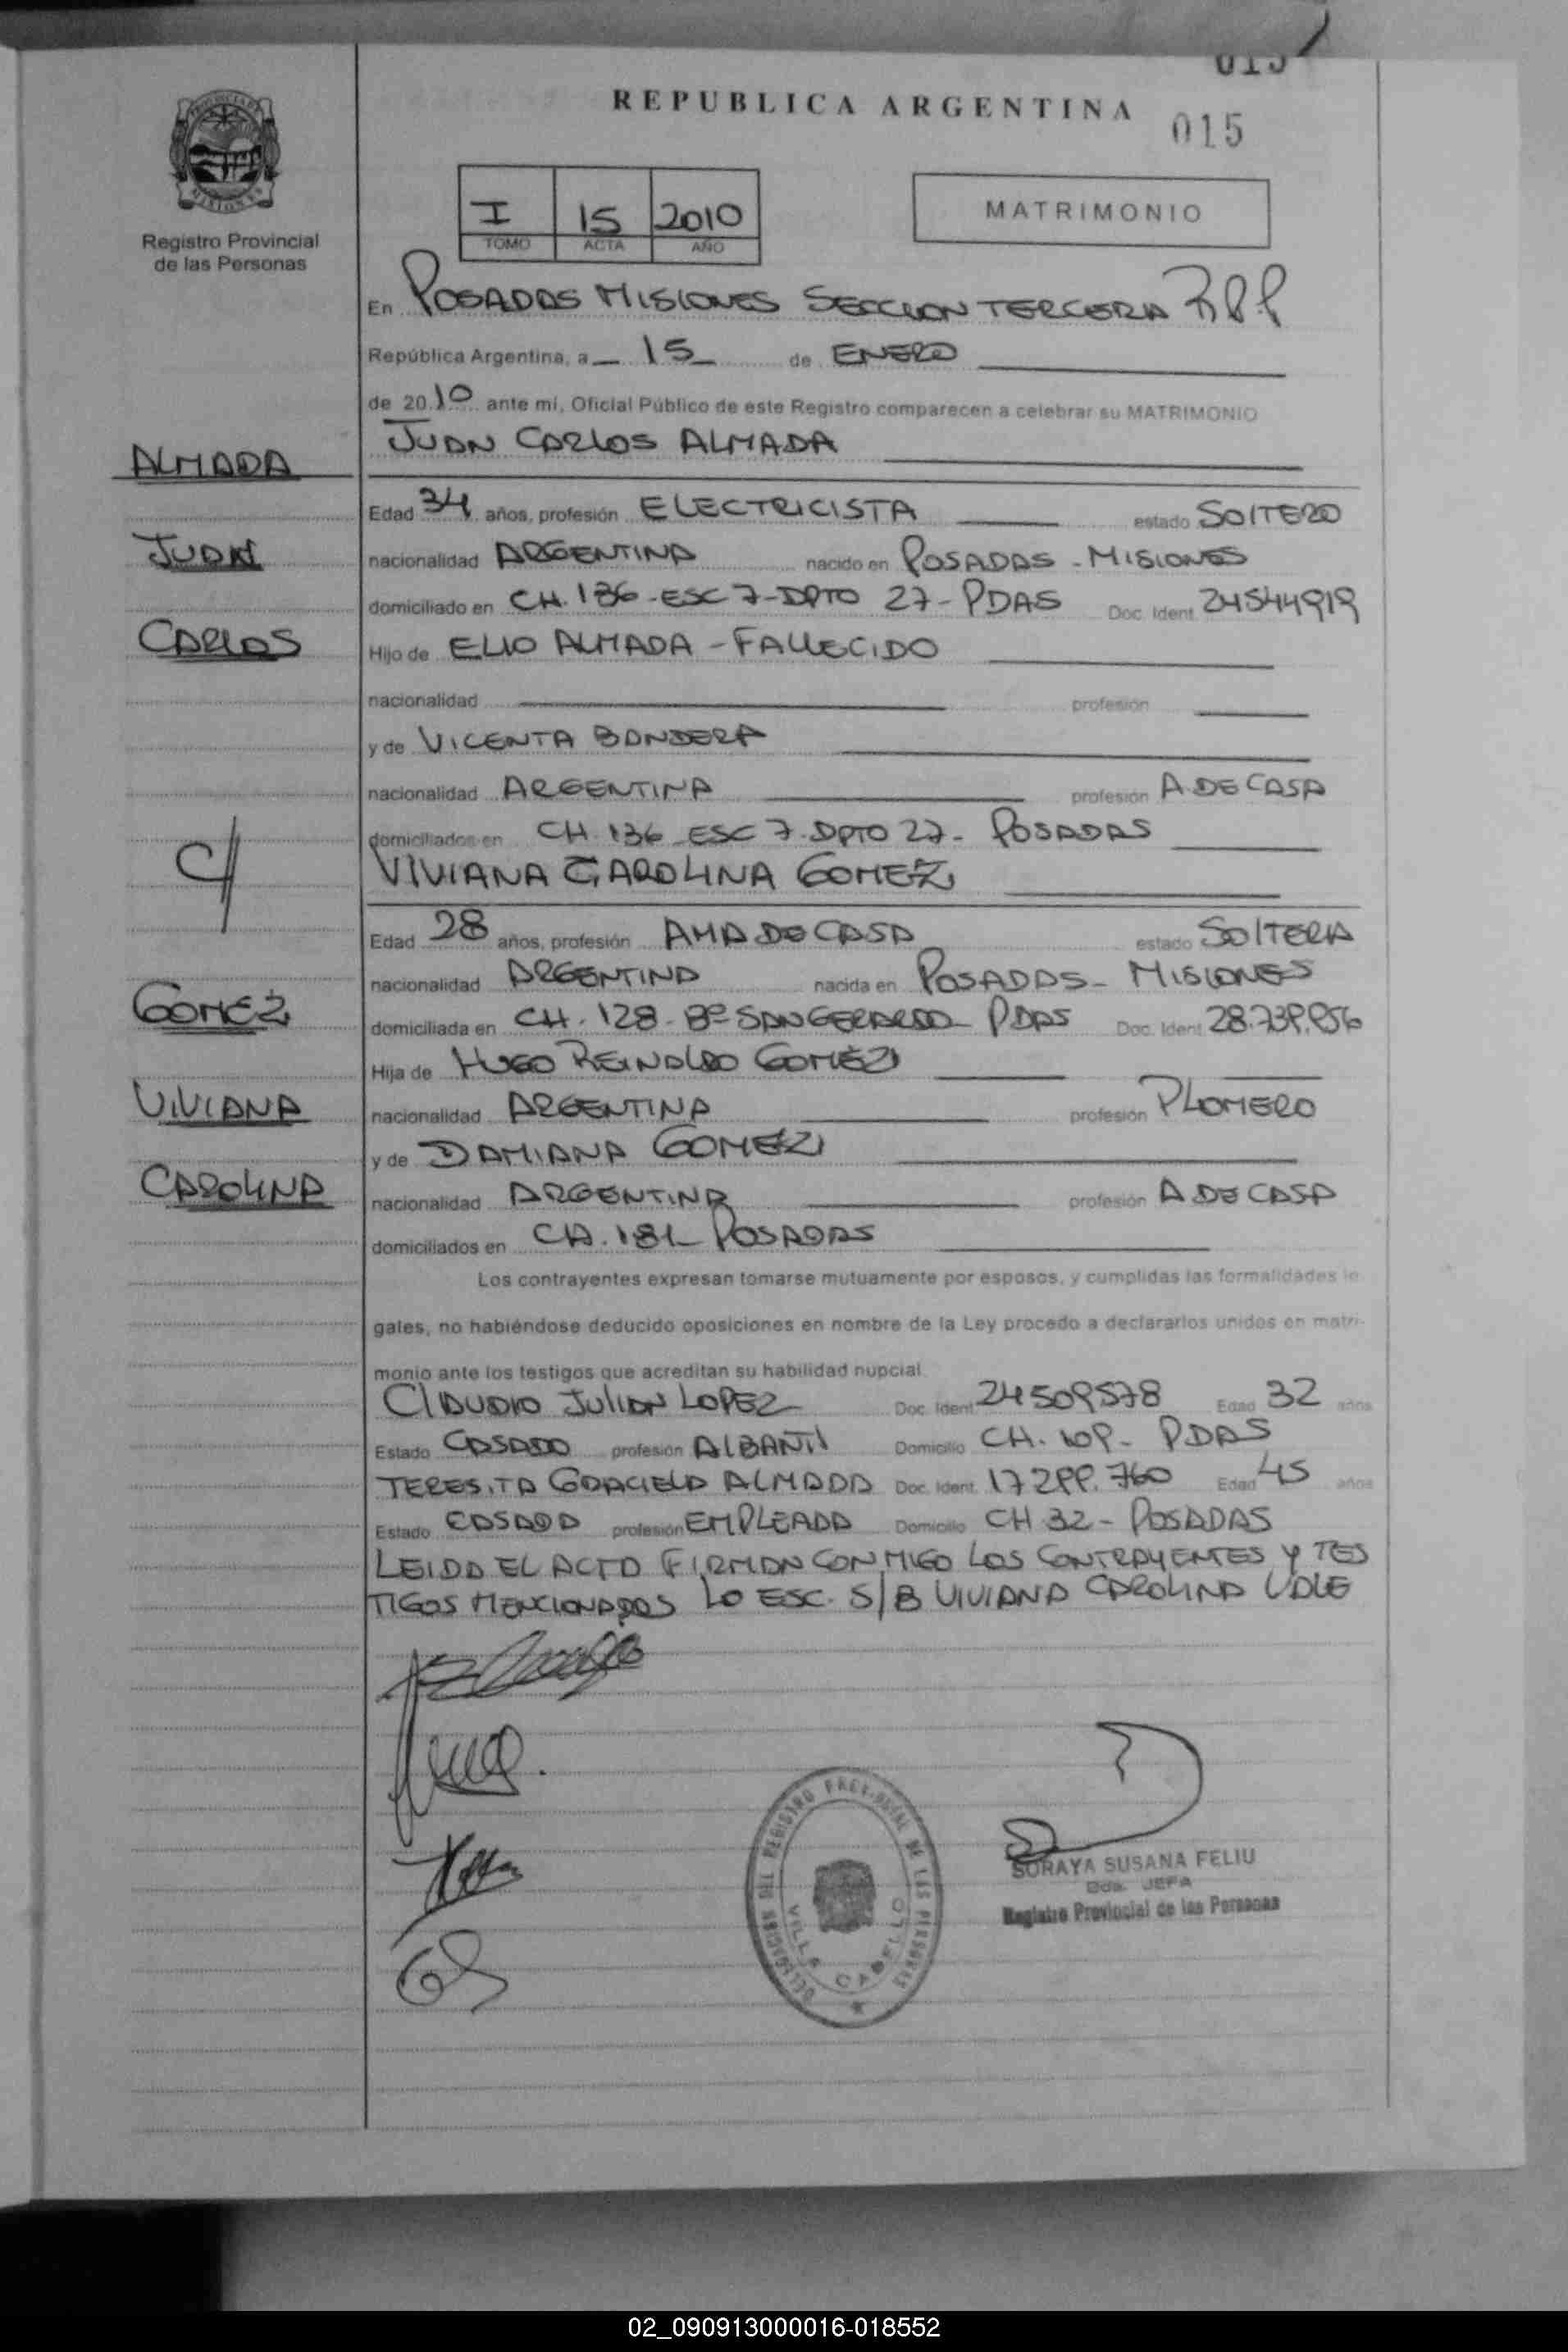 015
REPUBLICA ARGENTINA
015
I 15 2010
TOMO ACTA AÑO
MATRIMONIO
Registro Provincial
de las Personas
En POSADAS MISIONES SECCION TERCERA RPP
República Argentina, a 15 de ENERO
de 2010 ante mí, Oficial Público de este Registro comparecen a celebrar su MATRIMONIO
JUAN CARLOS ALMADA
ALMADA
Edad 34 años, profesión ELECTRICISTA estado SOLTERO
JUAN
nacionalidad ARGENTINA nacido en POSADAS - MISIONES
domiciliado en CH. 136 - ESC 7 - DPTO 27 - PDAS Doc. Ident. 24544919
CARLOS
Hijo de ELIO ALMADA - FALLECIDO
nacionalidad profesión
y de VICENTA BANDERA
nacionalidad ARGENTINA profesión A. DE CASA
domiciliados en CH. 136 ESC 7 - DPTO 27 - POSADAS
C/
VIVIANA CAROLINA GOMEZ
Edad 28 años, profesión AMA DE CASA estado SOLTERA
nacionalidad ARGENTINA nacida en POSADAS - MISIONES
GOMEZ
domiciliada en CH. 128 - Bº SAN GERARDO - PDAS Doc. Ident. 28.739.856
Hija de HUGO REINALDO GOMEZ
VIVIANA
nacionalidad ARGENTINA profesión PLOMERO
y de DAMIANA GOMEZ
CAROLINA
nacionalidad ARGENTINA profesión A DE CASA
domiciliados en CH. 181 - POSADAS
Los contrayentes expresan tomarse mutuamente por esposos, y cumplidas las formalidades le-
gales, no habiéndose deducido oposiciones en nombre de la Ley procedo a declararlos unidos en matri-
monio ante los testigos que acreditan su habilidad nupcial.
CLAUDIO JULIAN LOPEZ Doc. Ident. 24509578 Edad 32 años
Estado CASADO profesión ALBAÑIL Domicilio CH. 109 - PDAS
TERESITA GRACIELA ALMADA Doc. Ident. 17299.760 Edad 45 años
Estado CASADA profesión EMPLEADA Domicilio CH 32 - POSADAS
LEIDA EL ACTA FIRMAN CONMIGO LOS CONTRAYENTES Y TES
TIGOS MENCIONADOS LO ESC. S/B VIVIANA CAROLINA VALE
DELEGACION DEL REGISTRO PROVINCIAL DE LAS PERSONAS
VILLA CABELLO
SORAYA SUSANA FELIU
JEFA
Registro Provincial de las Personas
02_090913000016-018552